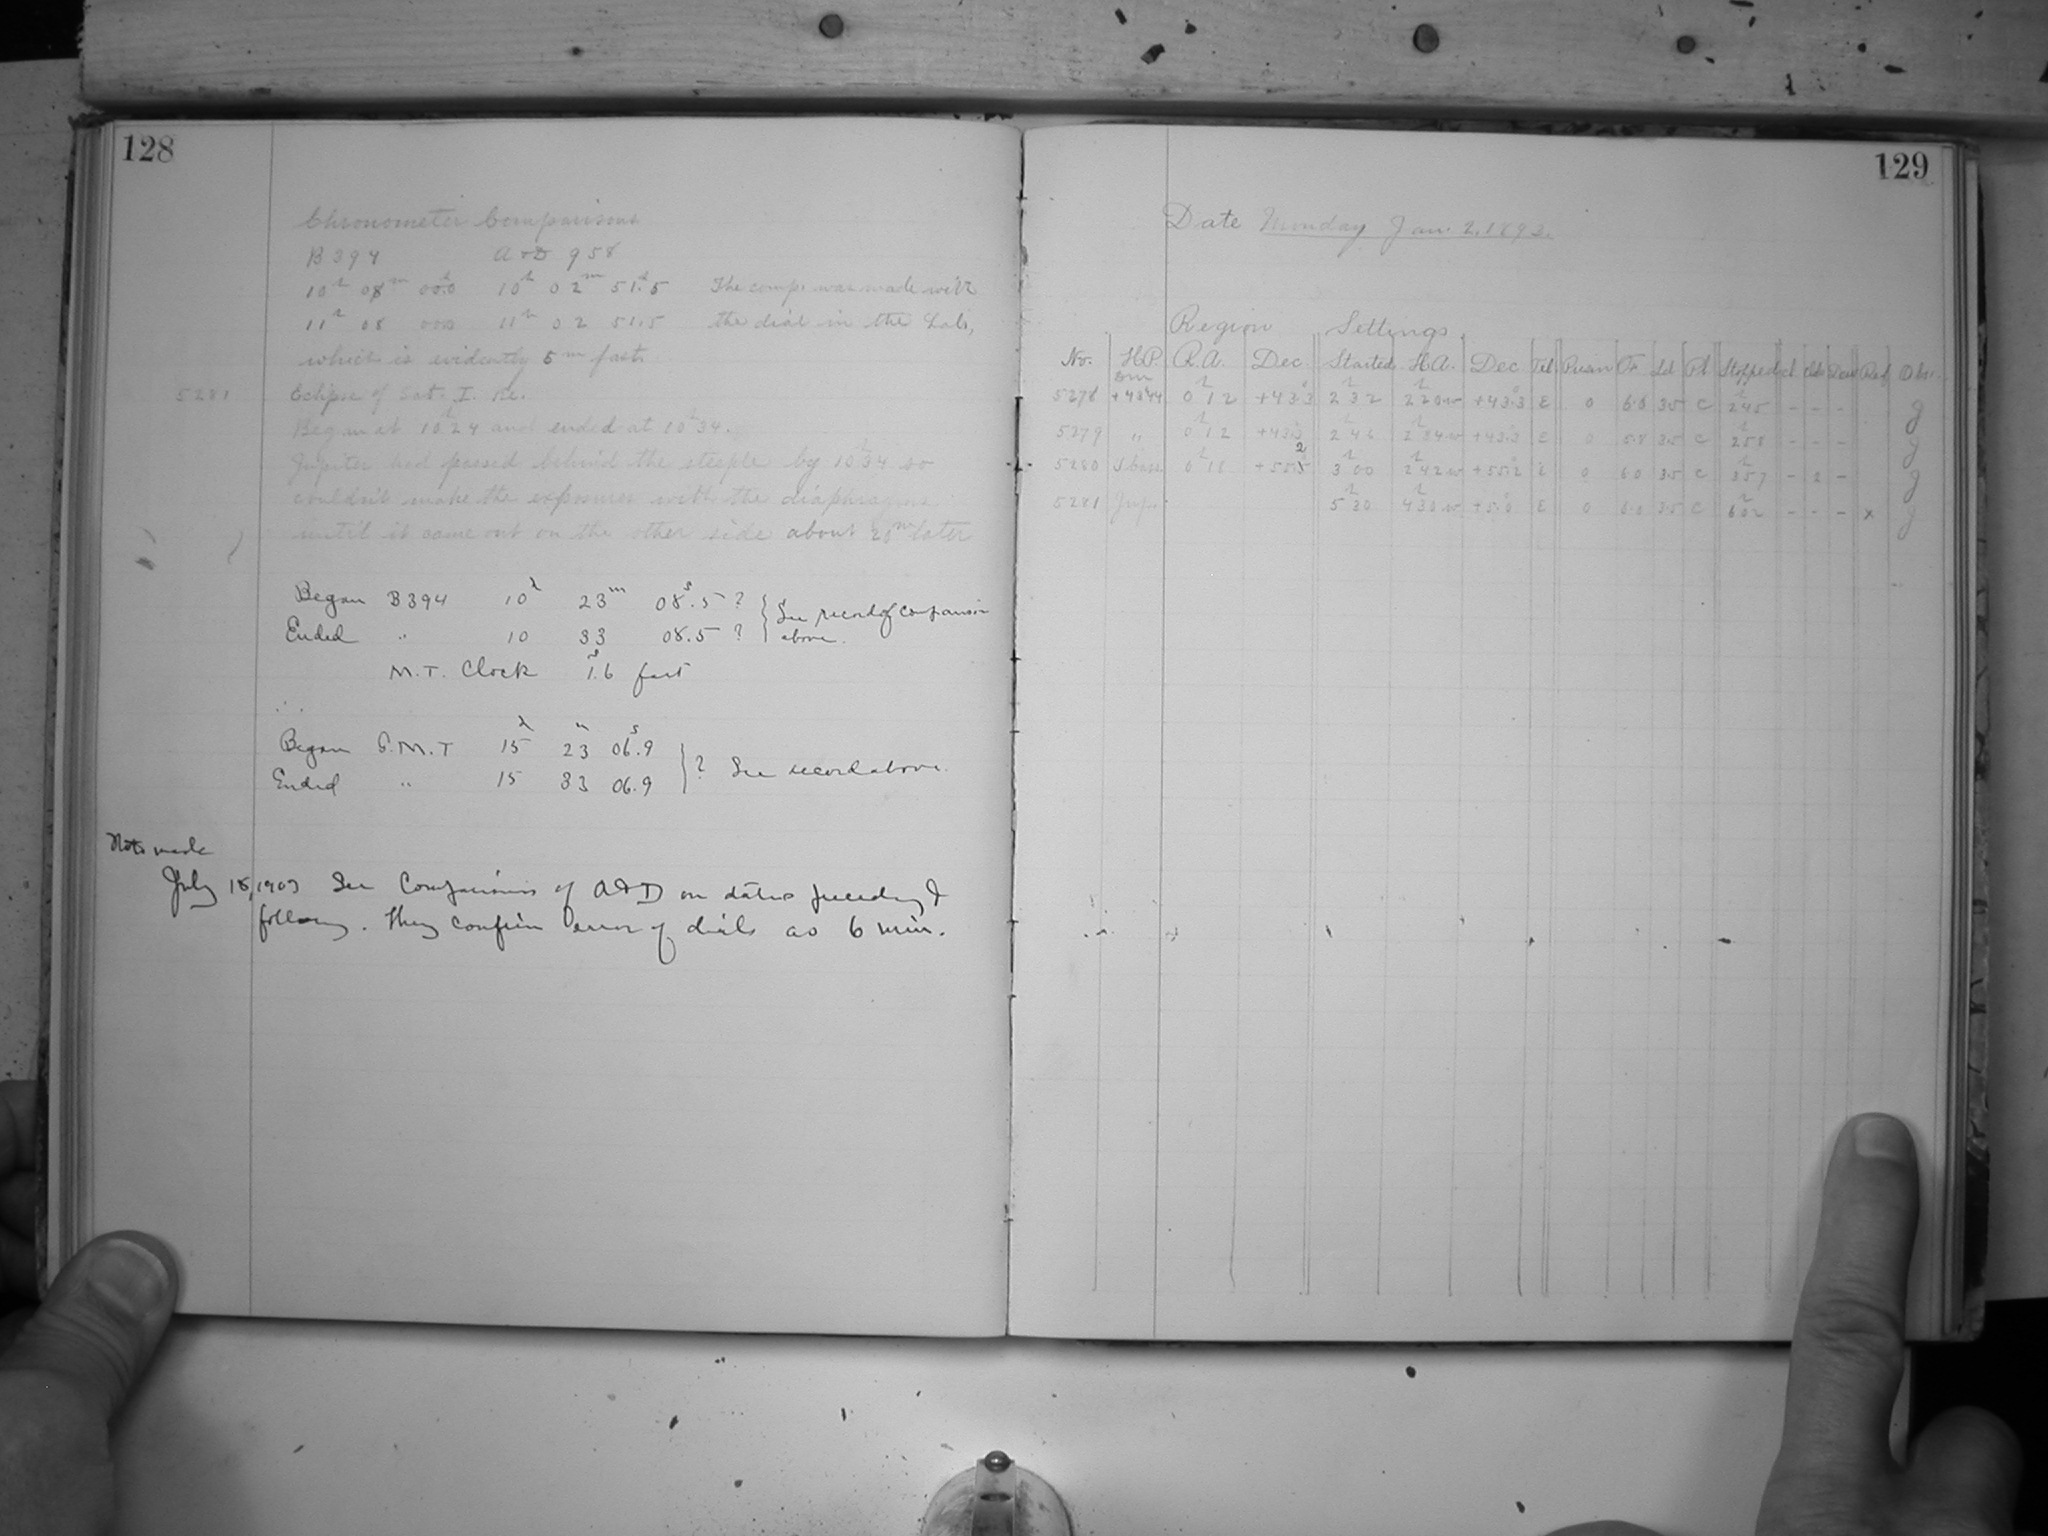 128
Chronometer Comparisons
B 394 A & D 958
10h 08m 00.0s 10h 02m 51.5s The comp. was made with
11h 08 00.0 11h 02 51.5 the dial in the Lab,
which is evidently 5m fast.
5281 Eclipse of Sat. I. Re.
Began at 10h24 and ended at 10h34.
Jupiter had passed behind the steeple by 10h34 so
couldn't make the exposures with the diaphragm
until it came out on the other side about 20m later
Began B394 10h 23m 08s.5 ? See record of comparison
Ended " 10 33 08.5 ? above.
M.T. Clock 1s.6 fast
∴
Began G.M.T 15h 23m 06s.9
Ended " 15 33 06.9 ? See record above.
Note made
July 18, 1903 See Comparisons of A&D on dates preceding &
following. They confirm error of dials as 6 min.
129
Date Monday Jan. 2. 1893.
Region Settings
No. H.P. R.A. Dec. Started H.A. Dec. Tel. Prism Fr. Pl. Stopped Ref. Obs.
5278 DM +43°44 0h12 +43°.3 2h32 2h20w +43°.3 E 0 6.0 35 C 2h45 - - - g
5279 " 0h12 +43°.3 2h46 2h34w +43°.3 E 0 5.8 35 C 2h58 - - - g
5280 0h18 3h00 2h42w +55°.2 E 0 6.0 35 C 3h57 - 2 - g
5281 Jup. 5h20 4h30w +5°.0 E 0 6.0 35 C 6h02 - - - x g